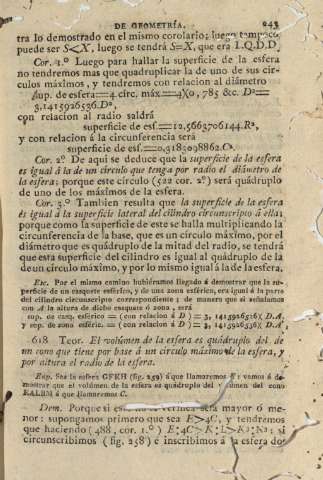 DE GEOMETRÍA. 243
tra lo demostrado en el mismo corolario; luego tampoco
puede ser S<X, luego se tendrá S=X, que era L.Q.D.D.
Cor. 1.º Luego para hallar la superficie de la esfera
no tendremos mas que quadruplicar la de uno de sus cír-
culos máximos, y tendremos con relacion al diámetro
sup. de esfera=4.circ. máx.=4×0, 785 &c. D²=
3,1415926536.D²,
con relacion al radio saldrá
superficie de esf.=12,5663706144.R²,
y con relacion á la circunferencia será
superficie de esf.=0,3183098862.C².
Cor. 2º De aqui se deduce que la superficie de la esfera
es igual á la de un círculo que tenga por radio el diámetro de
la esfera; porque este círculo (522 cor. 2º) será quádruplo
de uno de los máximos de la esfera.
Cor. 3.º Tambien resulta que la superficie de la esfera
és igual á la superficie lateral del cilindro circunscripto á ella;
porque como la superficie de este se halla multiplicando la
circunferencia de la base, que es un círculo máximo, por el
diámetro que es quádruplo de la mitad del radio, se tendrá
que esta superficie del cilindro es igual al quádruplo de la
de un círculo máximo, y por lo mismo igual á la de la esfera.
Esc. Por el mismo camino hubiéramos llegado á demostrar que la su-
perficie de un casquete esférico, y de una zona esférica, era igual á la parte
del cilindro circunscripto correspondiente; de manera que si señalamos
con A la altura de dicho casquete ó zona, será
sup. de casq. esférico = (con relacion á D) = 3, 1415926536× D.A,
y sup. de zona esféric. = (con relacion á D) = 3, 1415926536× D.A.
618 Teor. El volúmen de la esfera es quádruplo del de
un cono que tiene por base á un círculo máximo de la esfera, y
por altura el radio de la esfera.
Exp. Sea la esfera GFKH (fig. 259) á que llamaremos E: vamos á de-
mostrar que el volúmen de la esfera es quádruplo del volúmen del cono
KALBM á que llamaremos C.
Dem. Porque si esto no se verifica será mayor ó me-
nor: supongamos primero que sea E>4C, y tendremos
que haciendo (488, cor. 1.º) si
circunscribimos (fig. 258) é inscribimos á la esfera dos